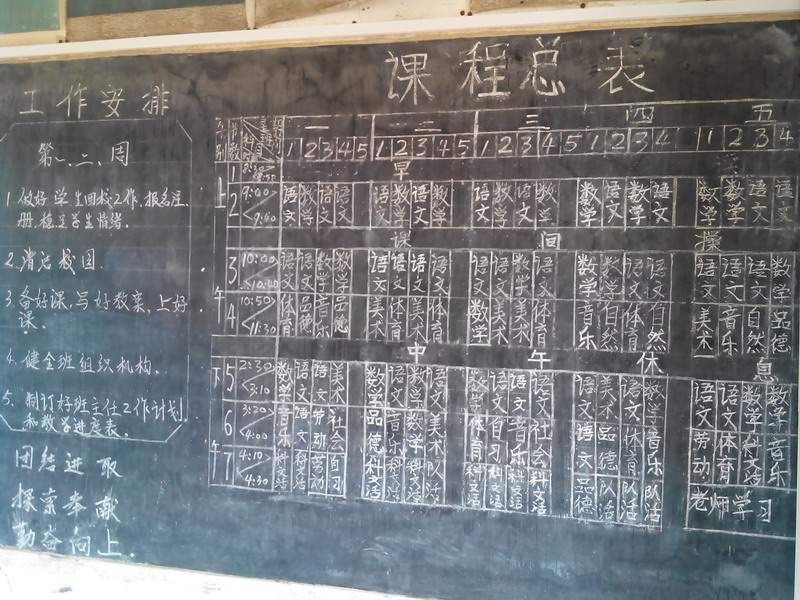 课程总表
工作安排
第一、二、周
1. 做好学生回校工作, 报名注
册, 稳定学生情绪.
2. 清点校园.
3. 备好课, 写好教案, 上好
课.
4. 健全班组织机构.
5. 制订好班主任工作计划
和教学进度表.
团结进取
探索奉献
勤奋向上.
一 二 三 四 五
1 2 3 4 5 1 2 3 4 5 1 2 3 4 5 1 2 3 4 1 2 3 4
1 早
上 2 9:00 9:40 语文 数学 语文 数学 语文 数学 语文 数学 语文 数学 语文 数学 数学 数学 语文 语文 数学 数学 语文 语文
课间操
3 10:00 10:40 语文 语文 数学 数学 语文 语文 语文 语文 语文 语文 数学 语文 数学 数学 语文 语文 语文 语文 语文 数学
午 4 10:50 11:30 体育 品德 音乐 品德 美术 体育 美术 体育 数学 美术 美术 体育 音乐 自然 体育 自然 美术 音乐 自然 品德
中午休息
下 5 2:30 3:10 数学 语文 语文 美术 数学 语文 数学 语文 数学 数学 语文 语文 语文 美术 语文 数学 语文 语文 数学 语文
6 3:20 4:00 音乐 语文 劳动 社会 品德 音乐 数学 美术 体育 自习 语文 社会 语文 品德 体育 音乐 劳动 体育 数学 音乐
午 7 4:10 4:50 科文活 科文活 劳动 自习 科文活 科文活 科文活 队活 科文活 科文活 科文活 科文活 品德 队活 队活 队活 老师学习